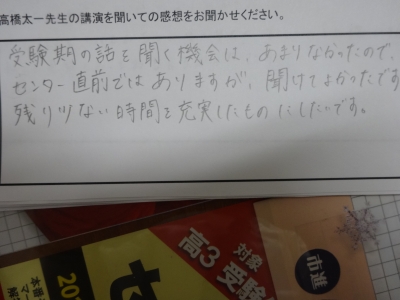 高橋太一先生の講演を聞いての感想をお聞かせください。
受験期の話を聞く機会は、あまりなかったので、
センター直前ではありますが、聞けてよかったです
残り少ない時間を充実したものにしたいです。
市進
対象
高3受験
セ
20